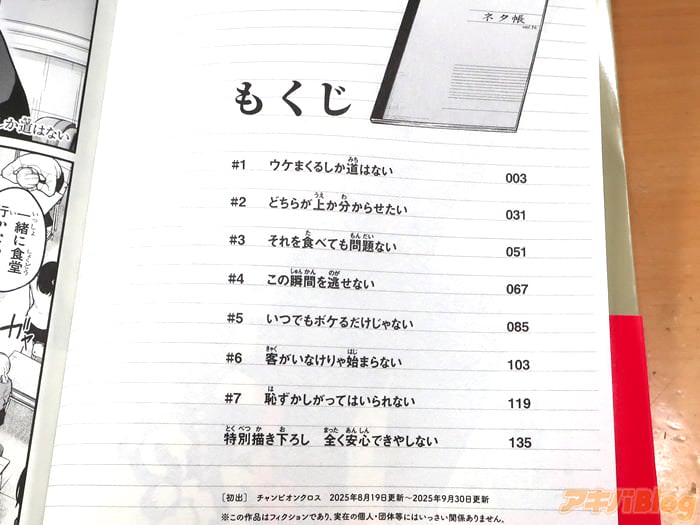 ネタ帳
もくじ
#1 ウケまくるしか道はない 003
#2 どちらが上か分からせたい 031
#3 それを食べても問題ない 051
#4 この瞬間を逃せない 067
#5 いつでもボケるだけじゃない 085
#6 客がいなけりゃ始まらない 103
#7 恥ずかしがってはいられない 119
特別描き下ろし 全く安心できやしない 135
[初出] チャンピオンクロス 2025年8月19日更新〜2025年9月30日更新
※この作品はフィクションであり、実在の個人・団体等にはいっさい関係ありません。
か道はない
一緒に食堂
アキバBlog